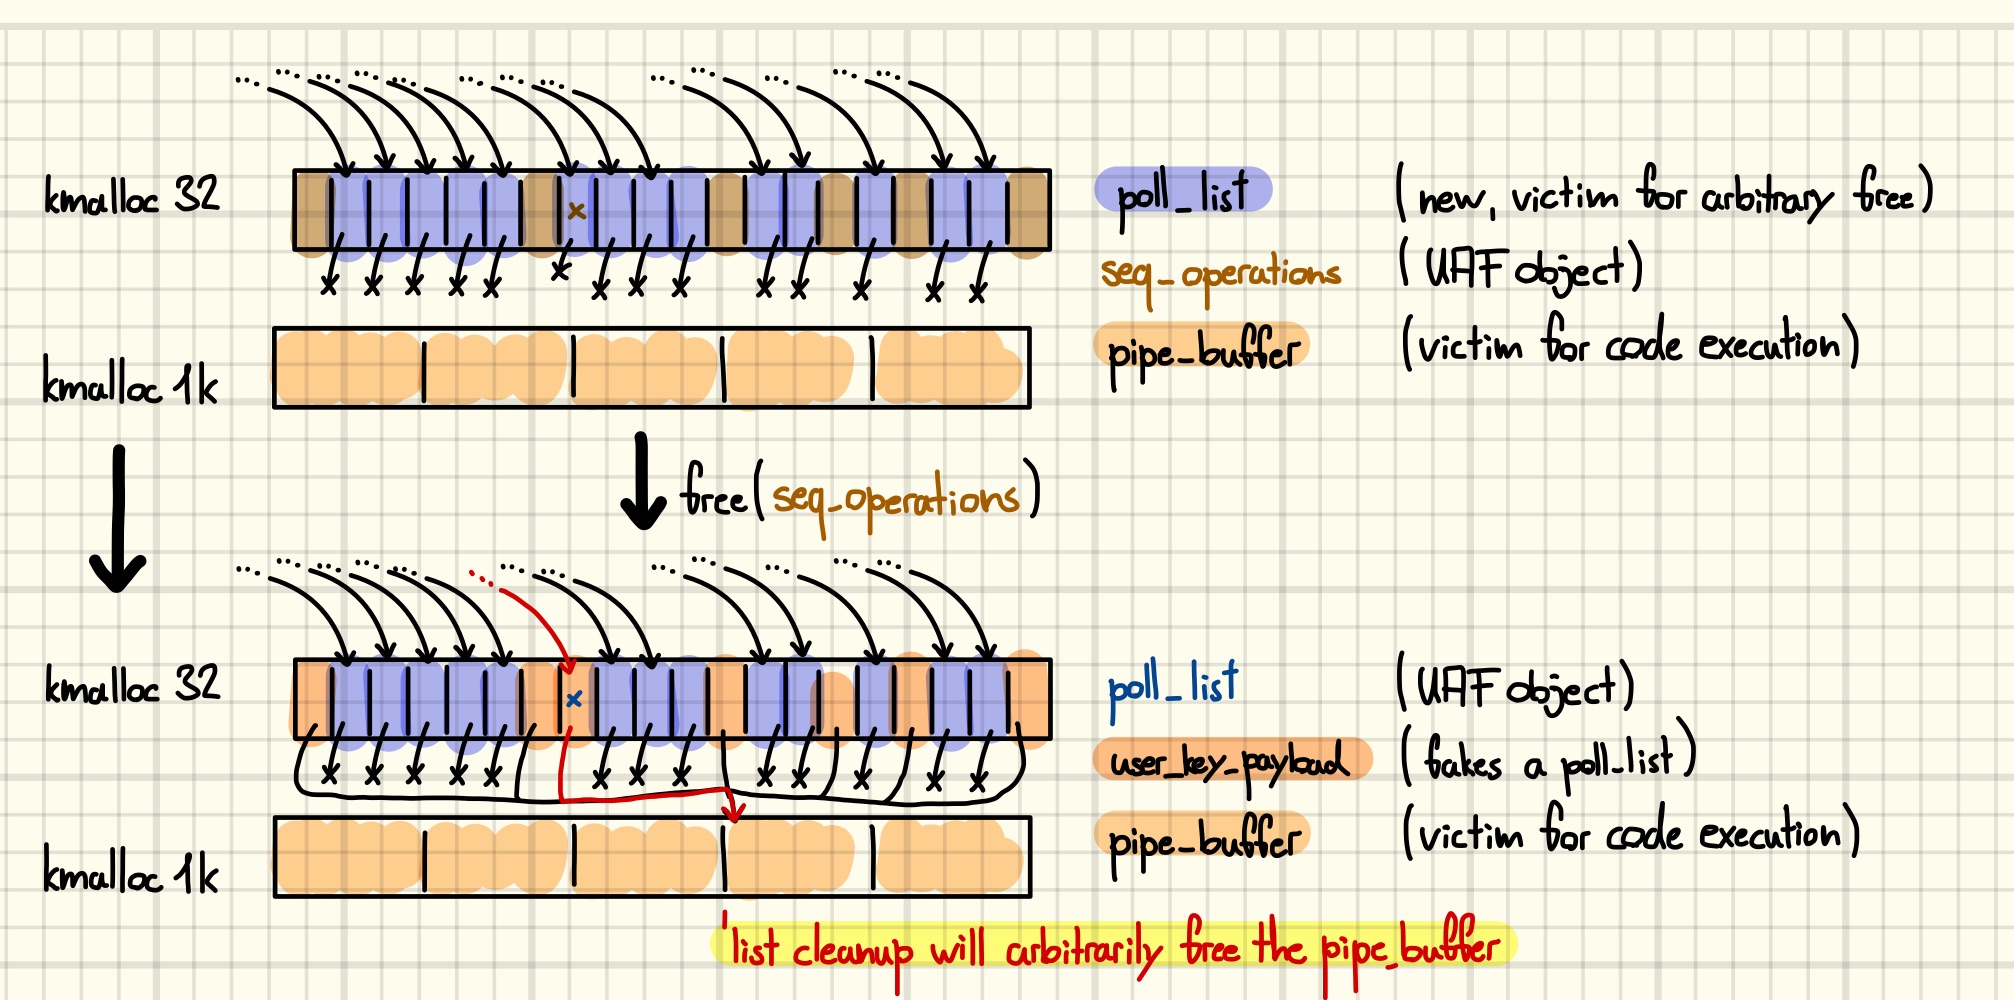 kmalloc 32
poll_list (new, victim for arbitrary free)
seq_operations (UAF object)
kmalloc 1k
pipe_buffer (victim for code execution)
free(seq_operations)
kmalloc 32
poll_list (UAF object)
user_key_payload (fakes a poll_list)
kmalloc 1k
pipe_buffer (victim for code execution)
list cleanup will arbitrarily free the pipe_buffer